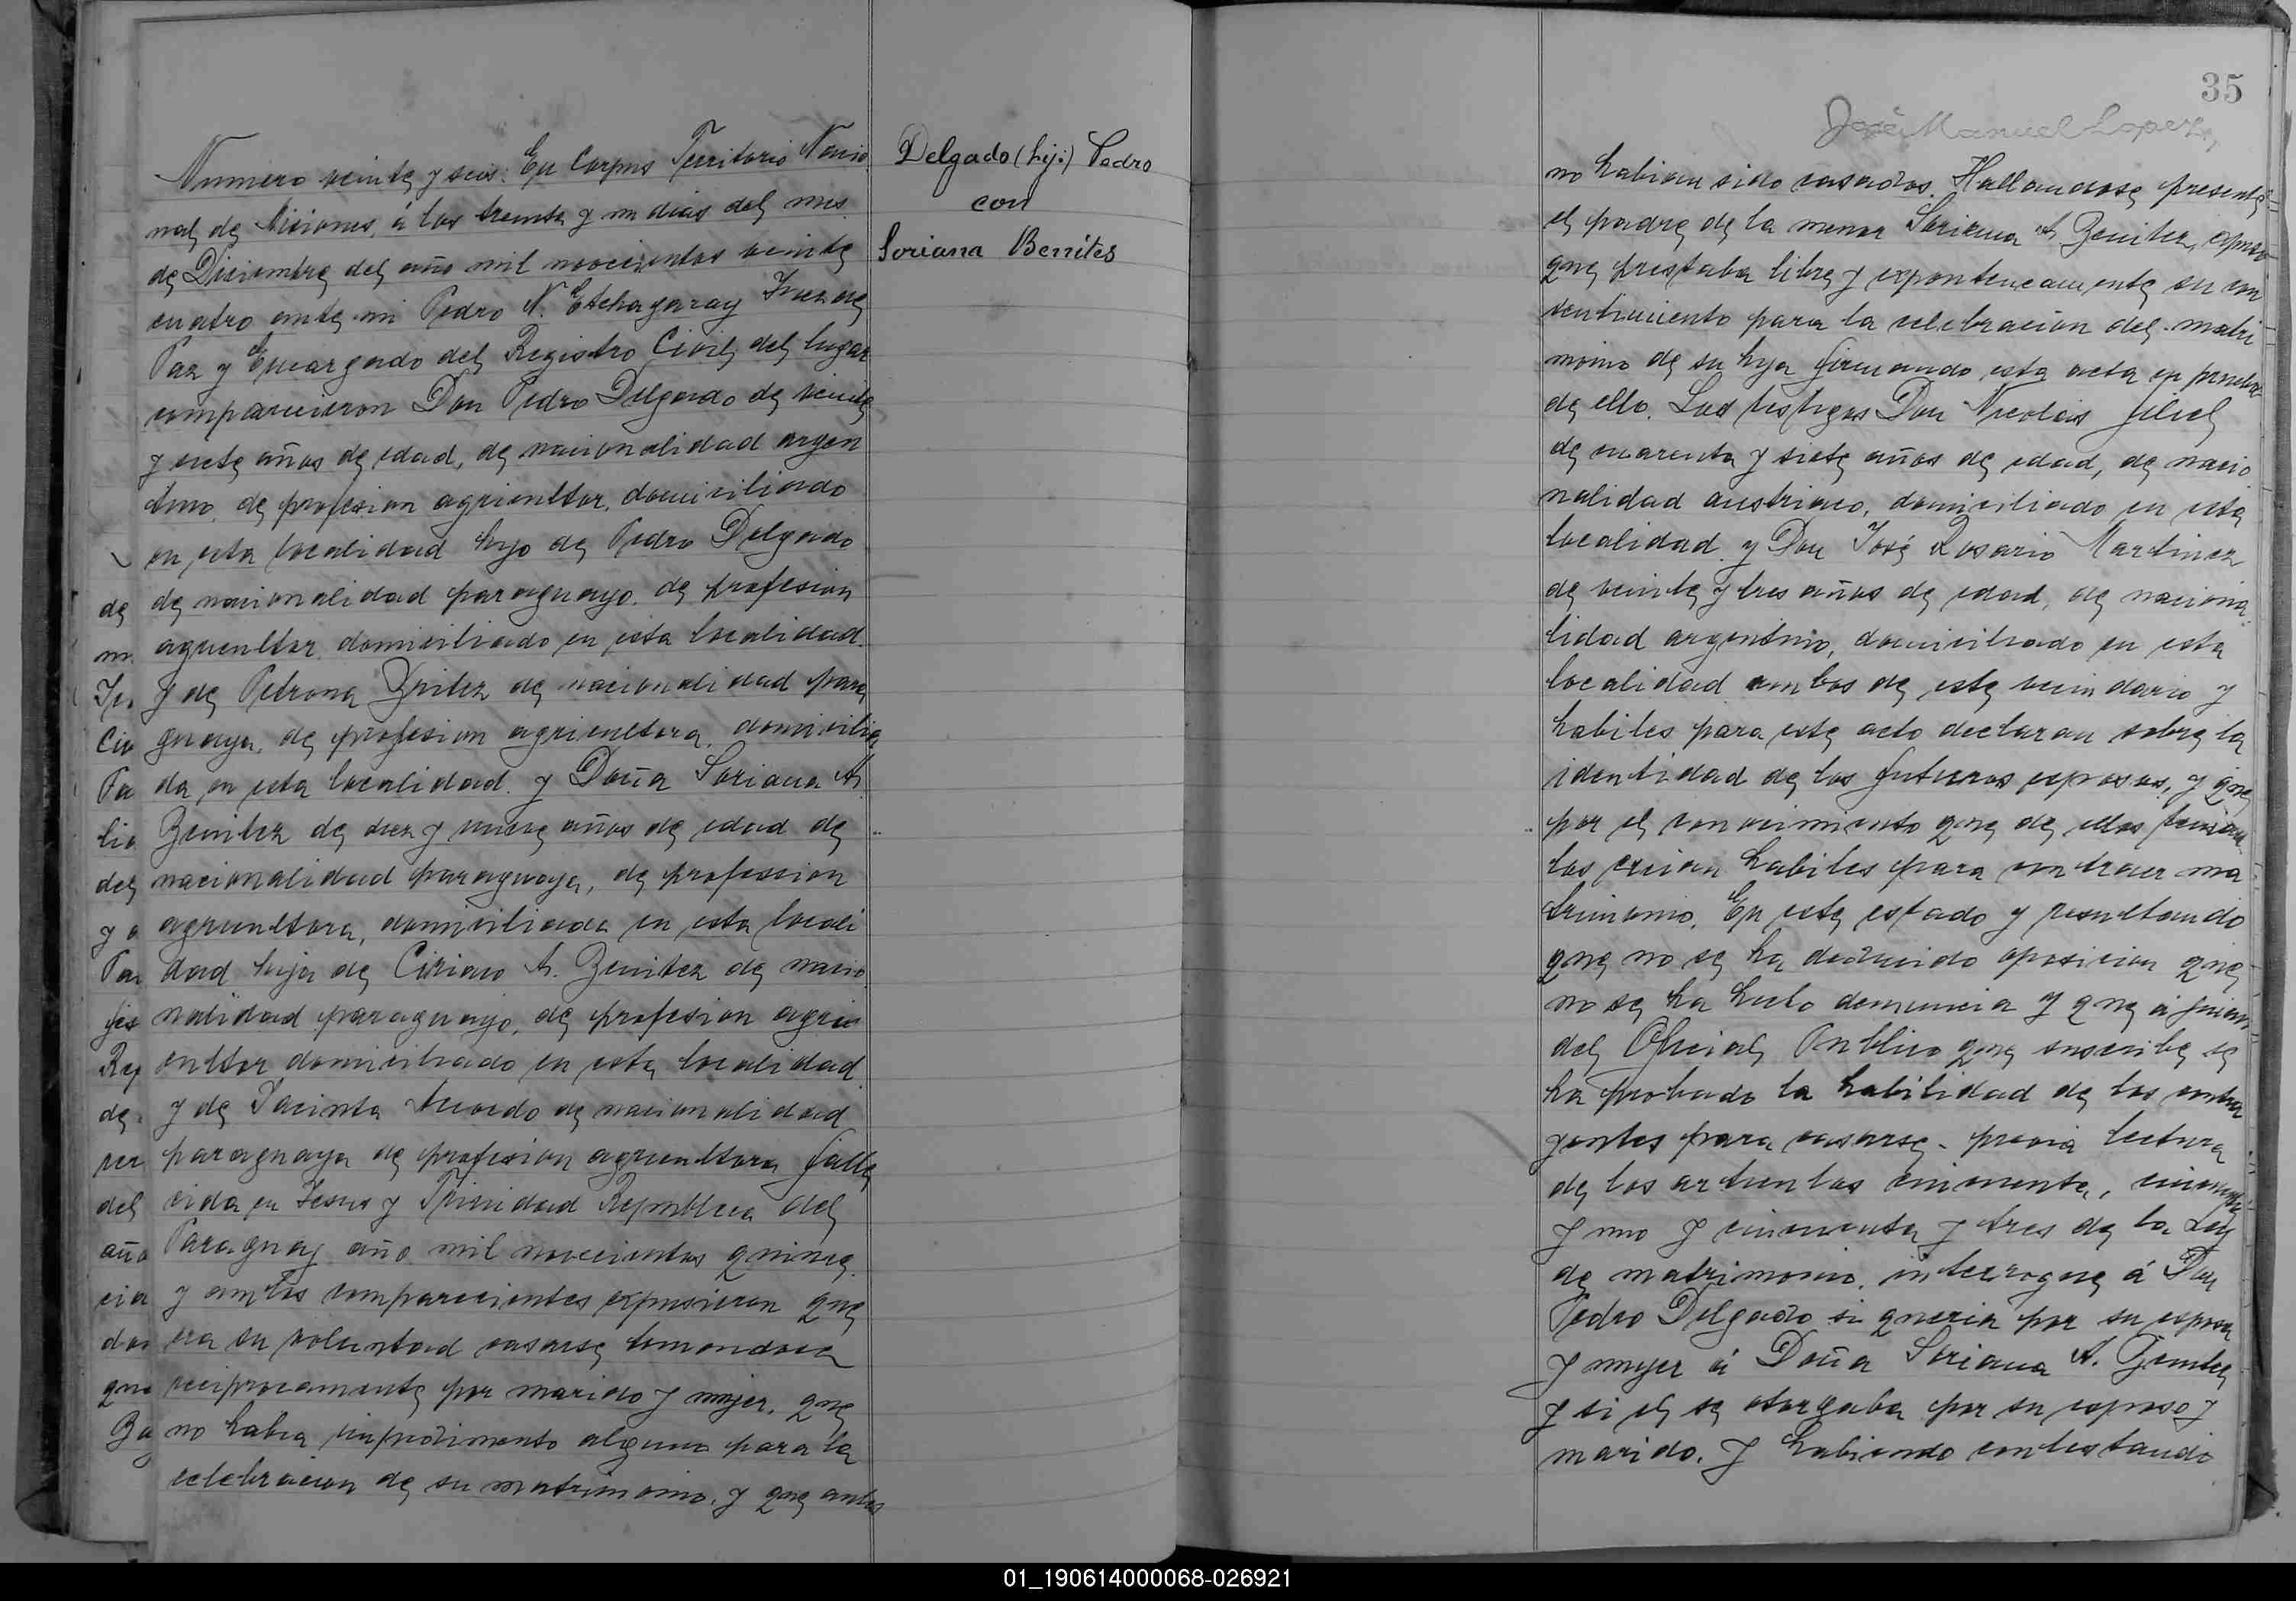 Numero veinte y seis. En Corpus Territorio Nacio
nal de Misiones, á los treinta y un dias del mes
de Diciembre del año mil novecientos veinte
cuatro ante mi Pedro N. Etchagaray Juez de
Paz y Encargado del Registro Civil del lugar
comparecieron Don Pedro Delgado de veinte
y siete años de edad, de nacionalidad argen
tino, de profesion agricultor, domiciliado
en esta localidad hijo de Pedro Delgado
de nacionalidad paraguayo, de profesion
agricultor domiciliado en esta localidad
y de Petrona Benitez de nacionalidad para
guaya, de profesion agricultora, domicilia
da en esta localidad y Doña Soriana A.
Benitez de diez y nueve años de edad de
nacionalidad paraguaya, de profession
agricultora, domiciliada en esta locali
dad hija de Ciriaco A. Benitez de nacio
nalidad paraguayo, de profesion agri
cultor domiciliado en esta localidad
y de Jacinta de nacionalidad
paraguaya de profesion agricultora falle
cida en Jesus y Trinidad Republica del
Paraguay año mil novecientos quince
y ambos comparecientes expusieron que
era su voluntad casarse tomandose
reciprocamente por marido y mujer, que
no habia impedimento alguno para la
celebracion de su matrimonio, y que antes
de
m.
Ju
Civ
Pa
lia
del
y a
Par
fes
Reg
de
ver
del
año
cia
dos
que
Delgado (hijo) Pedro
con
Soriana Benites
35
José Manuel Lopez
no habian sido casados. Hallandose presente
el padre de la menor Soriana A Benitez, expuso
que prestaba libre y exponteneamente su con
sentimiento para la celebracion del matri
monio de su hija firmando esta acta en prueba
de ello. Los testigos Don Nicolás
de cuarenta y siete años de edad, de nacio
nalidad austriaco, domiciliado en esta
localidad y Don José Rosario Martinez
de veinte y tres años de edad, de naciona
lidad argentino, domiciliado en esta
localidad ambos de este vecindario y
habiles para este acto declaran sobre la
identidad de los futuros esposos, y que
por el conocimiento que de ellos tenian
los creian habiles para contraer ma
trimonio. En este estado y resultando
que no se ha deducido oposicion que
no se ha hecho denuncia y que á juicio
del Oficial Publico que suscribe se
ha probado la habilidad de los contra
yentes para casarse previa lectura
de los articulos cincuenta, cincuenta
y uno y cincuenta y tres de la Ley
de matrimonio, interrogue á Don
Pedro Delgado si queria por su esposa
y mujer á Doña Soriana A. Benitez
y si el se otorgaba por su esposo y
marido. Y habiendo contestando
01_190614000068-026921